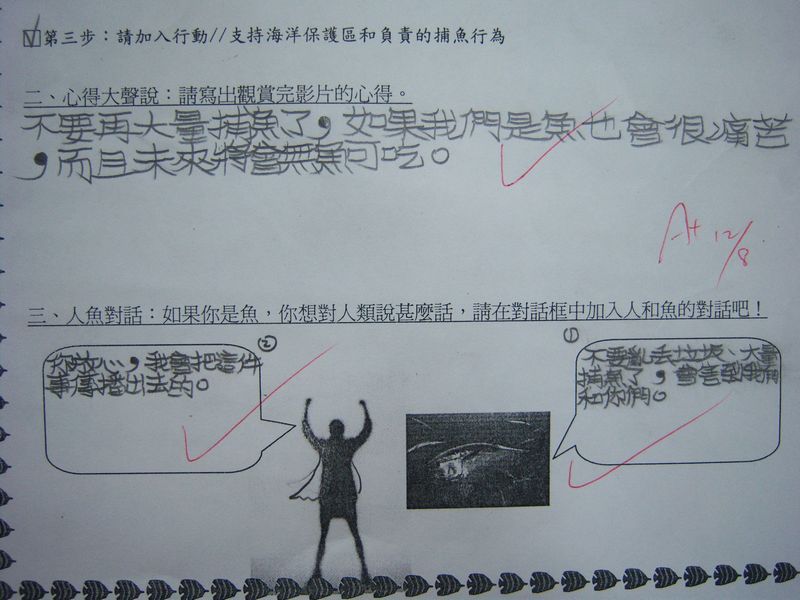 第三步：請加入行動//支持海洋保護區和負責的捕魚行為
二、心得大聲說：請寫出觀賞完影片的心得。
不要再大量捕魚了，如果我們是魚也會很痛苦
，而且未來將會無魚可吃。
A+ 12/8
三、人魚對話：如果你是魚，你想對人類說甚麼話，請在對話框中加入人和魚的對話吧！
①
不要亂丟垃圾、大量
捕魚了，會害到我們
和你們。
②
你放心，我會把這件
事傳播出去的。